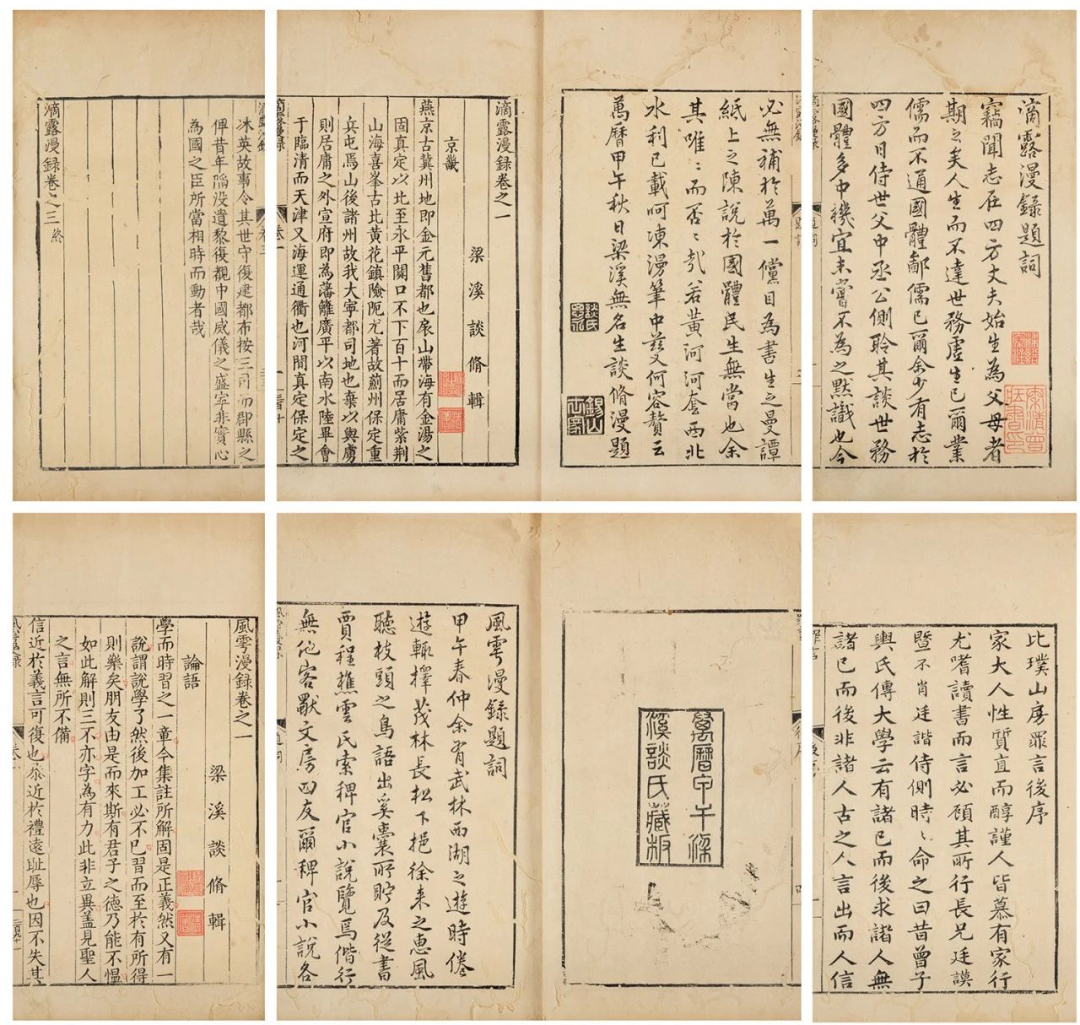 滴露漫錄題詞
竊聞志在四方丈夫始生為父母者
期之矣人生而不達世務虛生已爾業
儒而不通國體鄙儒已爾余少有志於
四方日侍世父中丞公側聆其談世務
國體多中機宜未嘗不為之默識也今
必無補於萬一儻目為書生之曼譚
紙上之陳說於國體民生無當也余
其唯〻而否〻哉若黃河河套西北
水利已載呵凍漫筆中茲又何容贅云
萬曆甲午秋日梁溪無名生談脩漫題
滴露漫錄卷之一
梁溪談脩輯
京畿
燕京古冀州地即金元舊都也扆山帶海有金湯之
固真定以北至永平關口不下百十而居庸紫荆
山海喜峯古北黃花鎮險阨尤著故薊州保定重
兵屯焉山後諸州故我大寧都司地也棄以與虜
則居庸之外宣府即為藩籬廣平以南水陸畢會
于臨清而天津又海運通衢也河間真定保定之
沐英故事令其世守復建都布按三司而郡縣之
俾昔年陷没遺黎復覩中國威儀之盛寧非實心
為國之臣所當相時而動者哉
滴露漫錄卷之三終
比璞山房罪言後序
家大人性質直而醇謹人皆慕有家行
尤嗜讀書而言必顧其所行長兄廷謨
暨不肖廷諧侍側時〻命之曰昔曾子
輿氏傳大學云有諸已而後求諸人無
諸已而後非諸人古之人言出而人信
萬曆甲午梁
溪談氏藏板
風雩漫錄題詞
甲午春仲余有武林西湖之遊時倦
遊輒擇茂林長松下挹徐来之惠風
聽枝頭之鳥語出奚囊所貯及従書
賈程樵雲氏索稗官小說覽焉偕行
無他客獸文房四友爾稗官小說各
風雩漫錄卷之一
梁溪談脩輯
論語
學而時習之一章今集註所解固是正義然又有一
說謂說學了然後加工必不已習而至於有所得
則樂矣朋友由是而來斯有君子之德乃能不慍
如此解則三不亦字為有力此非立異盖見聖人
之言無所不備
信近於義言可復也恭近於禮遠耻辱也因不失其